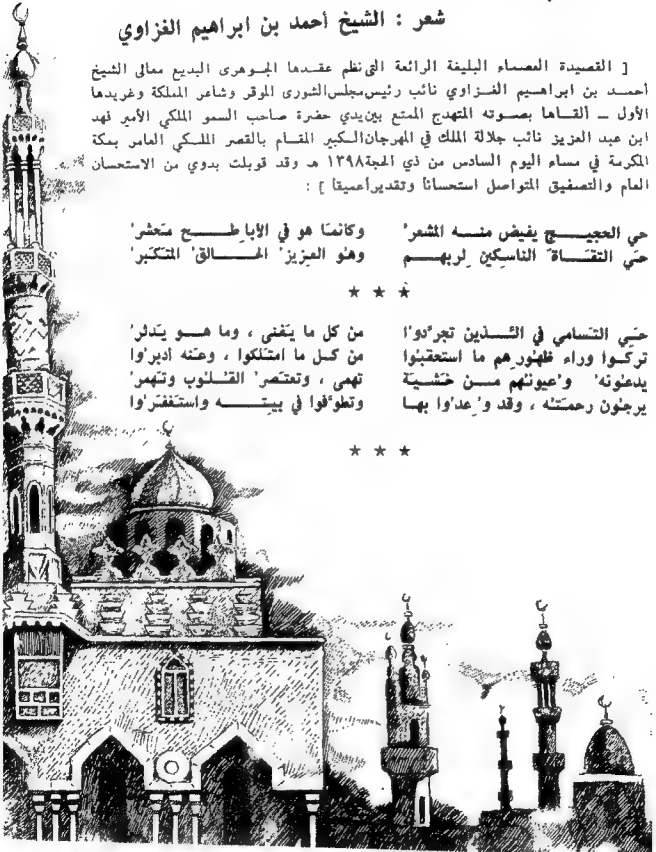 شعر : الشيخ أحمد بن ابراهيم الغزاوي
[ القصيدة العصماء البليغة الرائعة التي نظم عقدها الجوهرى البديع معالى الشيخ
أحمد بن ابراهيم الغزاوي نائب رئيس مجلس الشورى الموقر وشاعر المملكة وغريدها
الأول – ألقاها بصوته المتهدج الممتع بين يدي حضرة صاحب السمو الملكي الأمير فهد
ابن عبد العزيز نائب جلالة الملك في المهرجان الكبير المقام بالقصر الملكي العامر بمكة
المكرمة في مساء اليوم السادس من ذي الحجة ١٣٩٨ هـ وقد قوبلت بدوي من الاستحسان
العام والتصفيق المتواصل استحساناً وتقديراً عميقاً ] :
حي الحجيج يفيض منه المشعر' وكأنما هو في الأباطح متحشر'
حتي التقاة الناسكين لربهم وهو العزيز' الخالق' المتكبر'
★ ★ ★
حتي التسامي في الذين تجردوا من كل ما يفنى ، وما هو يدثر'
تركوا وراء ظهورهم ما استعقبوا من كل ما امتلكوا ، وعنه ادبروا
يدعونه' وعيونهم من خشية تهمى ، وتعتصر' القلوب وتهمر'
يرجون رحمته ، وقد وعدوا بها وتطوفوا في بيته واستغفروا
★ ★ ★